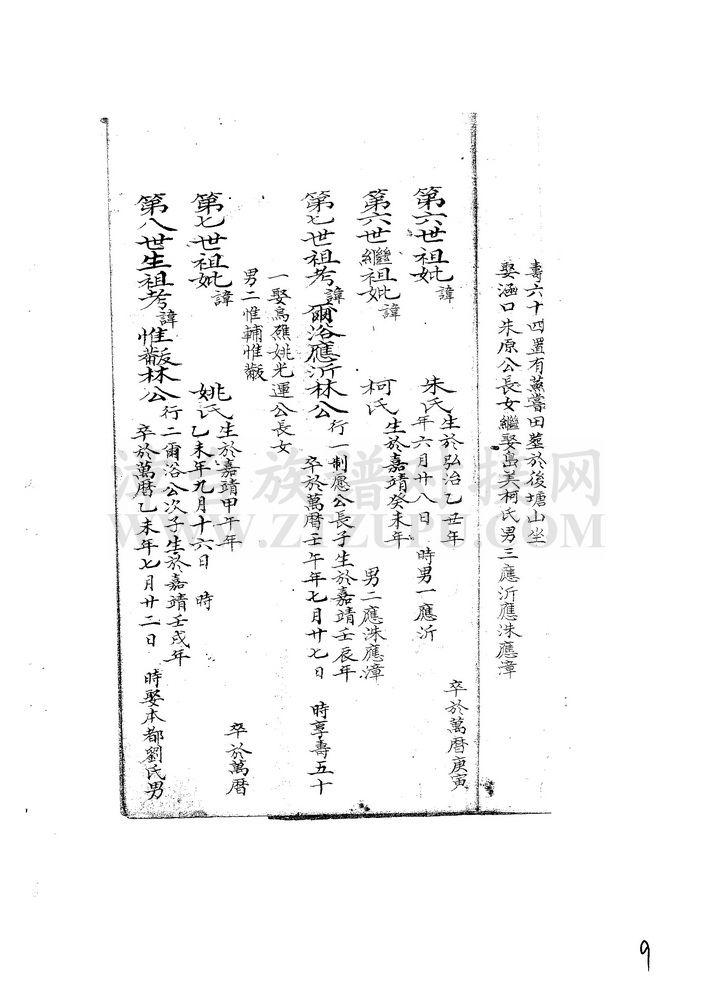 壽六十四置有蒸嘗田墓於後塘山坐
娶涵口朱原公長女繼娶島美柯氏男三應沂應洙應漳
第六世祖妣諱 朱氏生於弘治乙丑年 卒於萬曆庚寅
年六月廿八日 時男一應沂
第六世繼祖妣諱 柯氏生於嘉靖癸未年 男二應洙應漳
第七世祖考諱爾浴應沂林公行一制愿公長子生於嘉靖壬辰年
卒於萬曆壬午年七月廿七日 時享壽五十
一娶烏礁姚光運公長女
男二惟輔惟黻
第七世祖妣諱 姚氏生於嘉靖甲午年 卒於萬曆
乙未年九月十六日 時
第八世生祖考諱惟黻林公行二爾浴公次子生於嘉靖壬戌年
卒於萬曆乙未年七月廿二日 時娶本都劉氏男
族谱科技网
WWW.ZUPU.COM
9